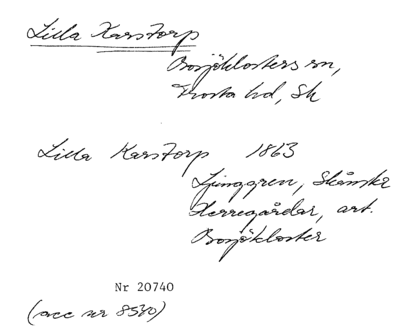 Lilla Karstorp
Bosjöklosters sn,
Frosta hd, Sk
Lilla Karstorp 1863
Ljunggren, Skånska
Herregårdar, art.
Bosjökloster
Nr 20740
(acc nr 8530)